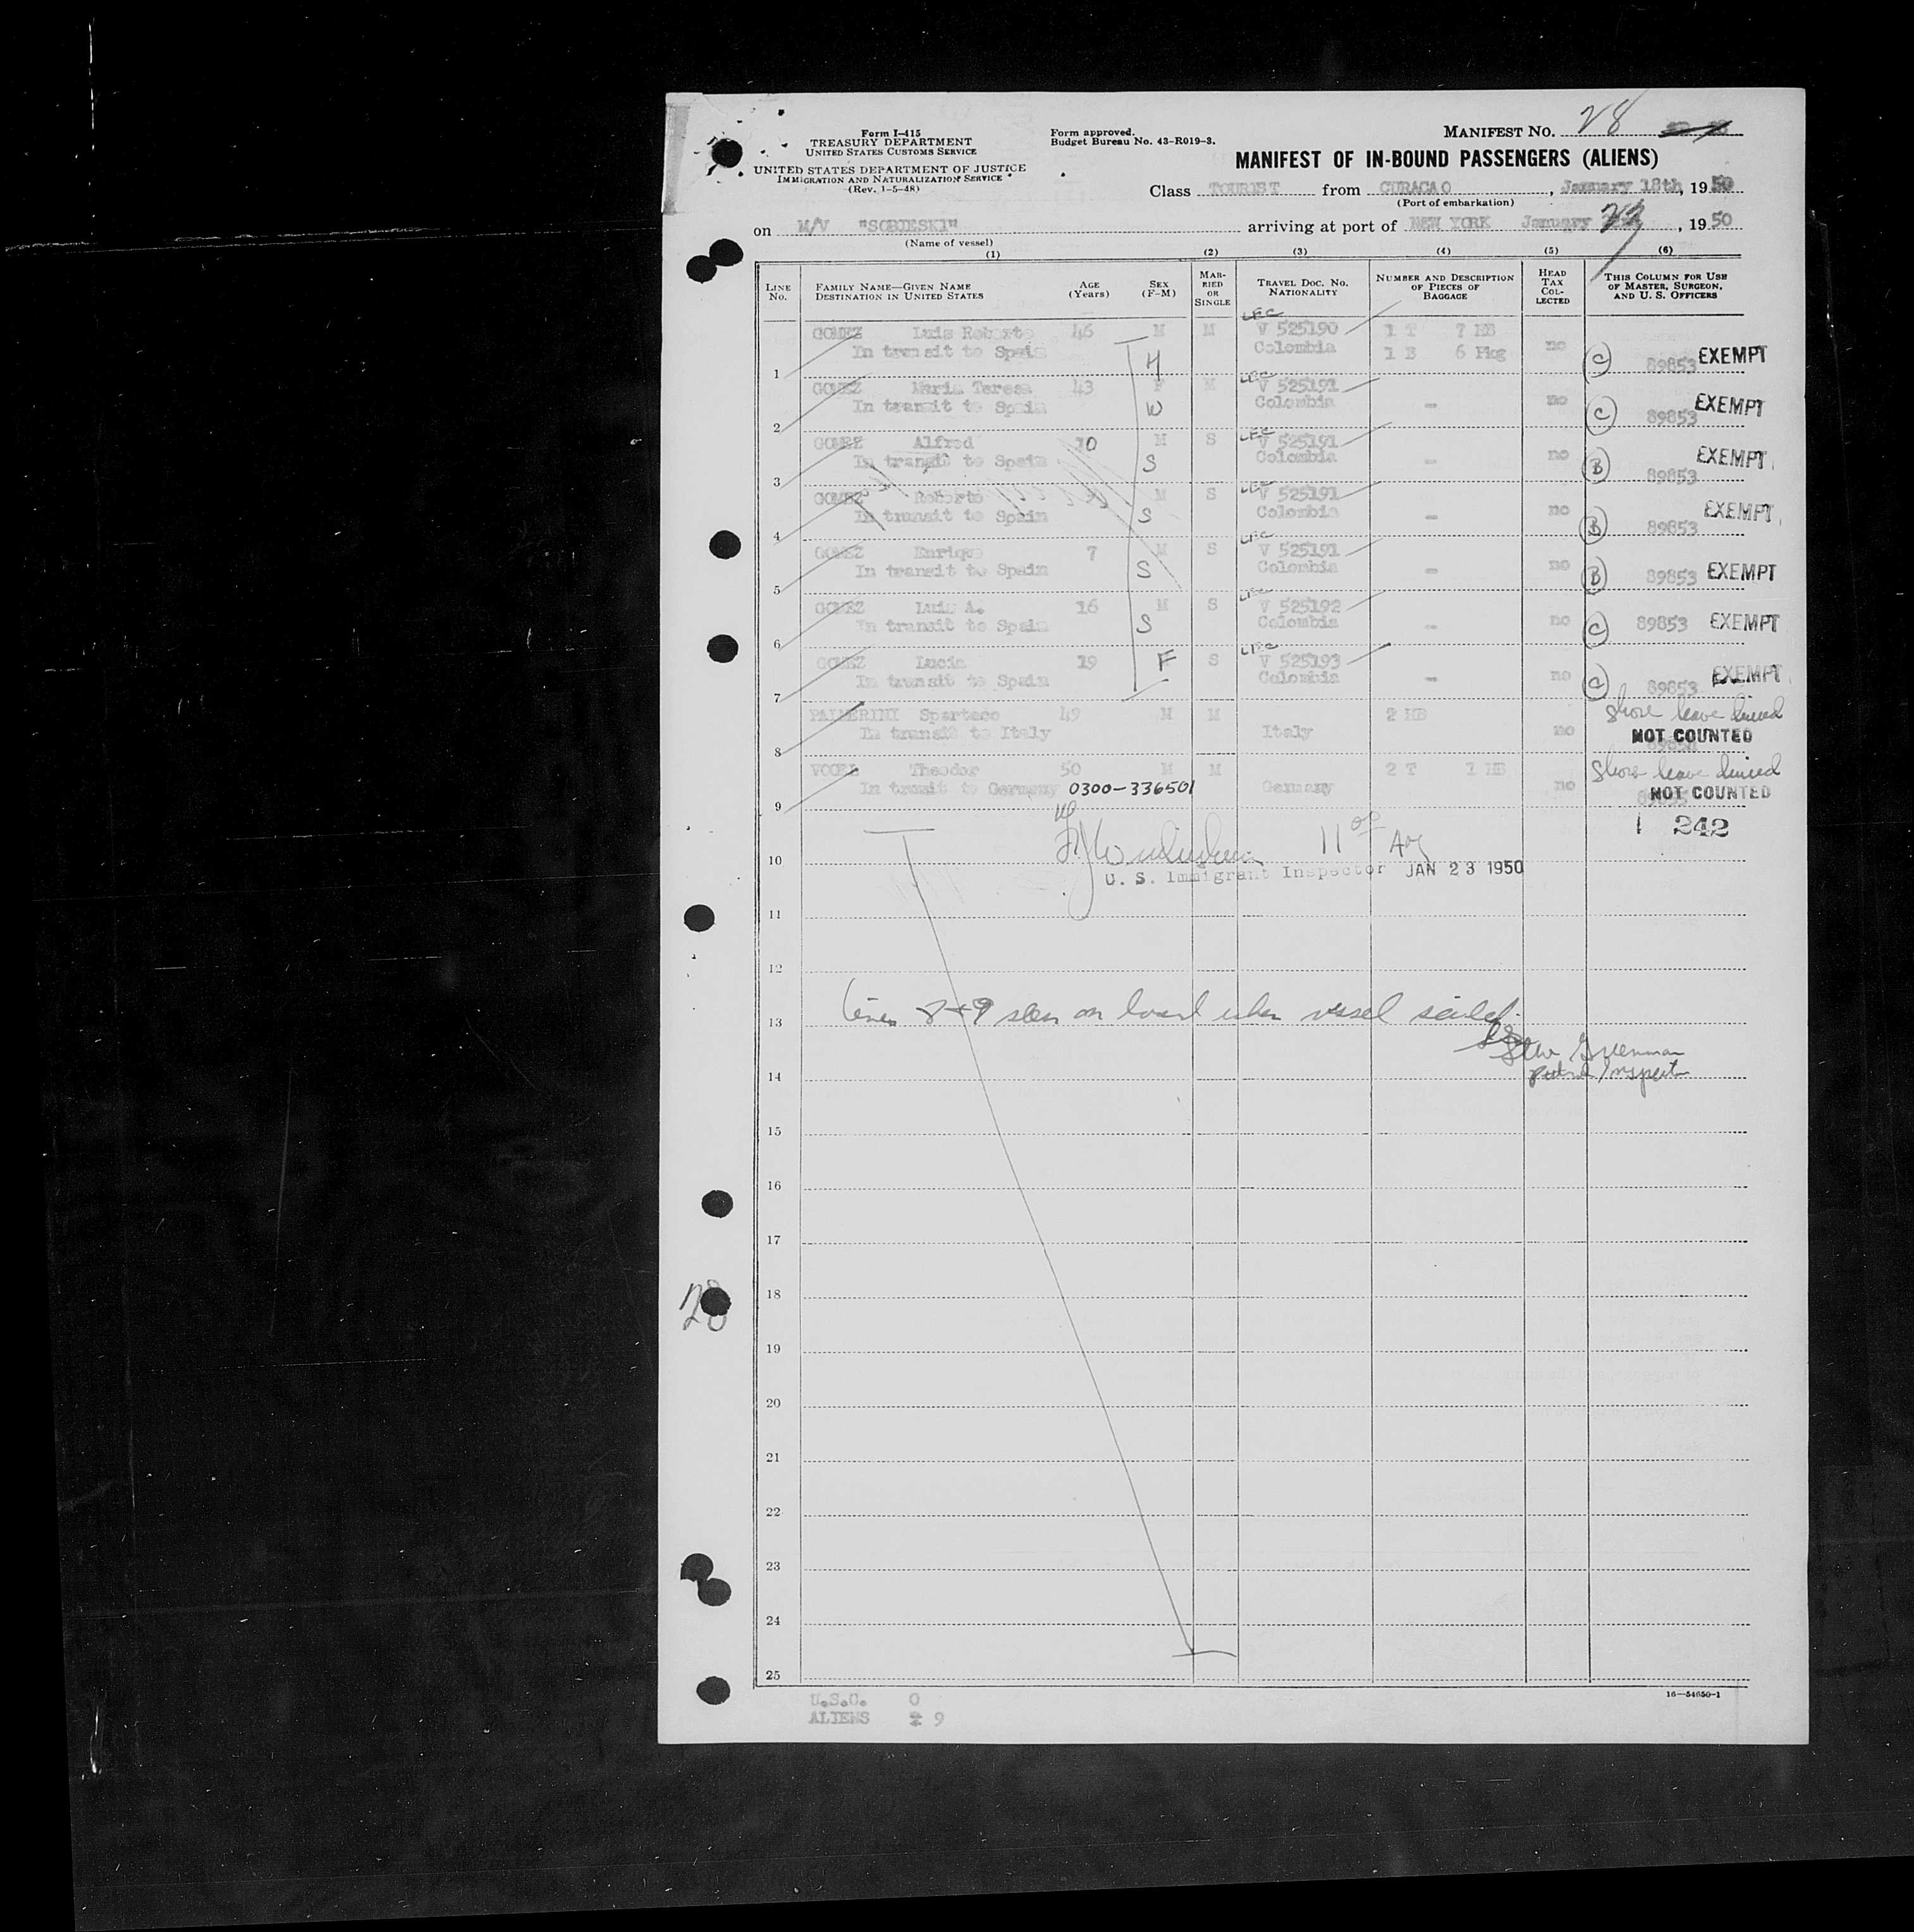 Form I-415
TREASURY DEPARTMENT
UNITED STATES CUSTOMS SERVICE
UNITED STATES DEPARTMENT OF JUSTICE
IMMIGRATION AND NATURALIZATION SERVICE
(Rev. 1-5-48)
Form approved.
Budget Bureau No. 43-R019-3.
MANIFEST NO. 28
MANIFEST OF IN-BOUND PASSENGERS (ALIENS)
Class TOURIST from CURACAO, January 18th, 1950
(Port of embarkation)
on M/V "SOBIESKI" arriving at port of NEW YORK January 23, 1950
(Name of vessel)
(1) (2) (3) (4) (5) (6)
LINE NO.
FAMILY NAME—GIVEN NAME DESTINATION IN UNITED STATES
AGE (Years)
SEX (F-M)
MARRIED OR SINGLE
TRAVEL DOC. NO. NATIONALITY
NUMBER AND DESCRIPTION OF PIECES OF BAGGAGE
HEAD TAX COLLECTED
THIS COLUMN FOR USE OF MASTER, SURGEON, AND U. S. OFFICERS
LFC
GOMEZ Luis Roberto 46 M M V 525190 1 T 7 HB
1 In transit to Spain H Colombia 1 B 6 Pkg no C 89853 EXEMPT
LFC
GOMEZ Maria Teresa 43 F M V 525191
2 In transit to Spain W Colombia - no C 89853 EXEMPT
LFC
GOMEZ Alfred 10 M S V 525191
3 In transit to Spain S Colombia - no B 89853 EXEMPT
LFC
GOMEZ Roberto M S V 525191
4 In transit to Spain S Colombia - no B 89853 EXEMPT
LFC
GOMEZ Enrique 7 M S V 525191
5 In transit to Spain S Colombia - no B 89853 EXEMPT
LFC
GOMEZ Luis A. 16 M S V 525192
6 In transit to Spain S Colombia - no C 89853 EXEMPT
LFC
GOMEZ Lucia 19 F S V 525193
7 In transit to Spain Colombia - no C 89853 EXEMPT
PALMERINI Spartaco 49 M M 2 HB Shore leave denied
8 In transit to Italy Italy no NOT COUNTED
VOGEL Theodor 50 M M 2 T 1 HB Shore leave denied
9 In transit to Germany 0300-336501 Germany no NOT COUNTED
1 242
10
U. S. Immigrant Inspector JAN 23 1950
11
12
Lines 8+9 seen on board when vessel sailed.
13
Greenman
Patrol Inspector
14
15
16
17
28
18
19
20
21
22
23
24
25
16—54650-1
U.S.C. 0
ALIENS 9